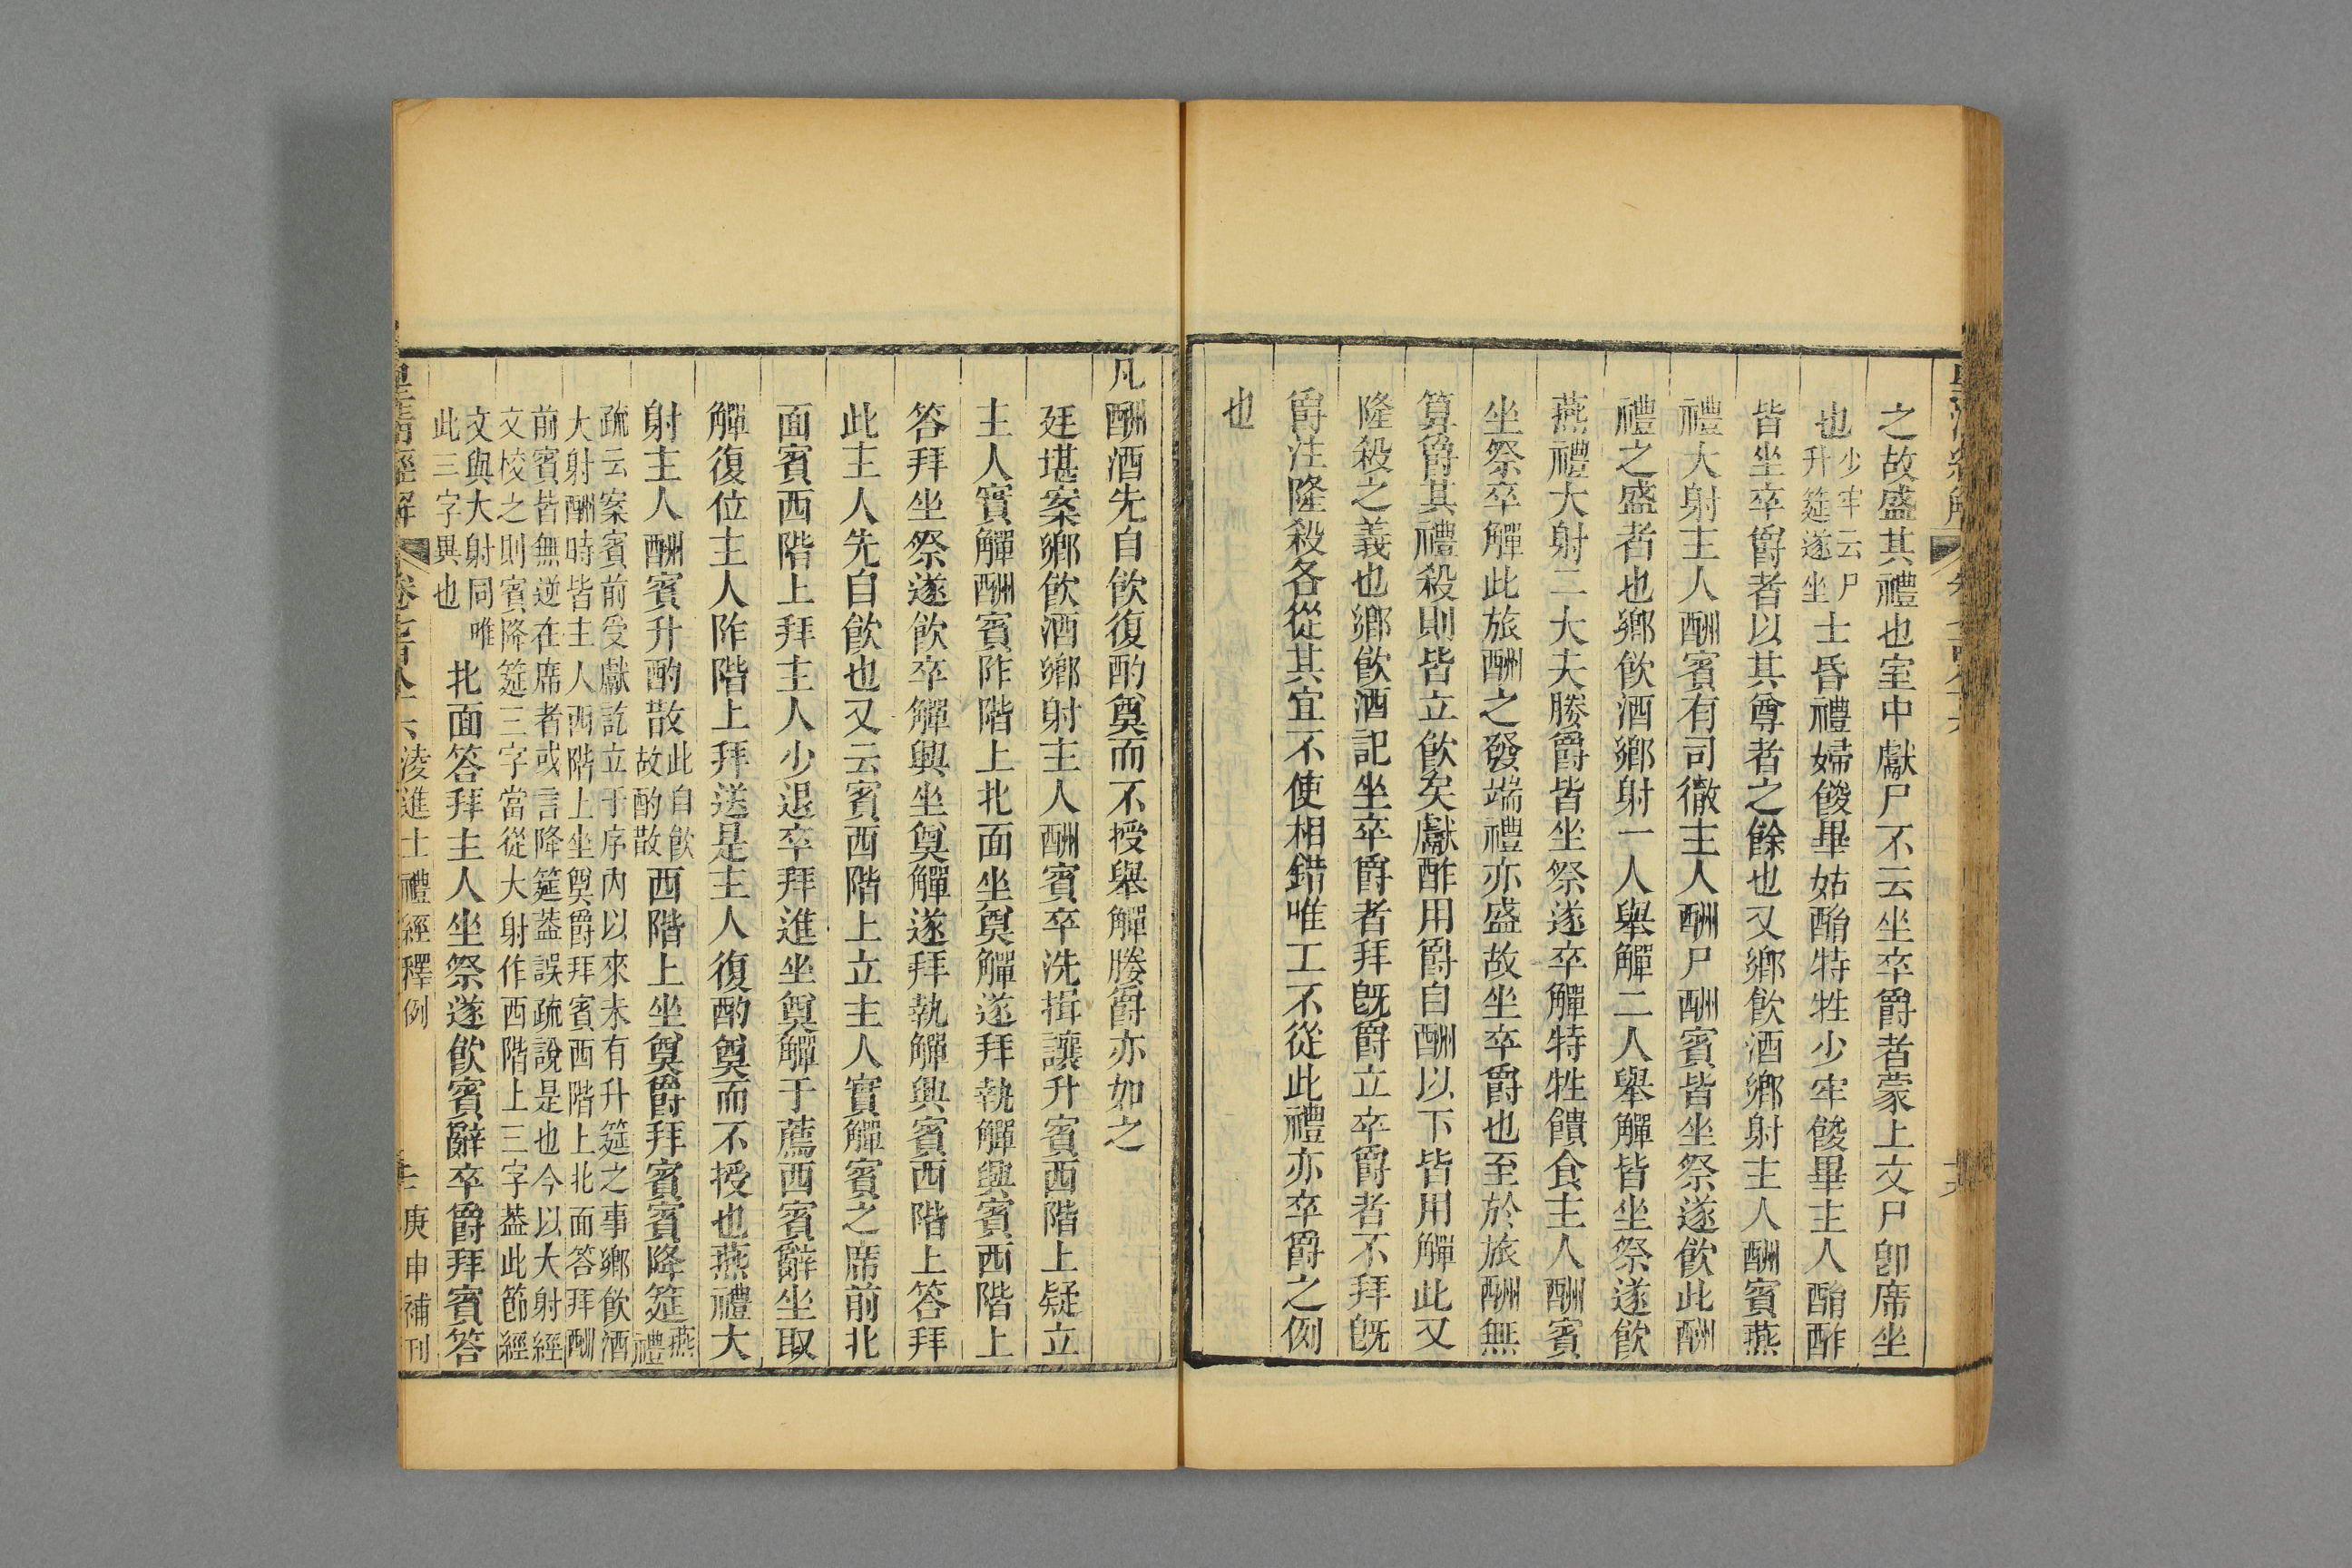 之故盛其禮也室中獻尸不云坐卒爵者蒙上文尸卽席坐
也少牢云尸升筵遂坐士昏禮婦餕畢姑酳特牲少牢餕畢主人酳酢
皆坐卒爵者以其尊者之餘也又鄉飮酒鄉射主人酬賓燕
禮大射主人酬賓有司徹主人酬尸酬賓皆坐祭遂飮此酬
禮之盛者也鄉飮酒鄉射一人舉觶二人舉觶皆坐祭遂飮
燕禮大射二大夫媵爵皆坐祭遂卒觶特牲饋食主人酬賓
坐祭卒觶此旅酬之發端禮亦盛故坐卒爵也至於旅酬無
算爵其禮殺則皆立飮矣獻酢用爵自酬以下皆用觶此又
隆殺之義也鄉飮酒記坐卒爵者拜旣爵立卒爵者不拜旣
爵注隆殺各從其宜不使相錯唯工不從此禮亦卒爵之例
也
凡酬酒先自飮復酌奠而不授舉觶媵爵亦如之
廷堪案鄉飮酒鄉射主人酬賓卒洗揖讓升賓西階上疑立
主人實觶酬賓阼階上北面坐奠觶遂拜執觶興賓西階上
答拜坐祭遂飮卒觶興坐奠觶遂拜執觶興賓西階上答拜
此主人先自飮也又云賓西階上立主人實觶賓之席前北
面賓西階上拜主人少退卒拜進坐奠觶于薦西賓辭坐取
觶復位主人阼階上拜送是主人復酌奠而不授也燕禮大
射主人酬賓升酌散此自飮故酌散西階上坐奠爵拜賓賓降筵燕禮
疏云案賓前受獻訖立于序內以來未有升筵之事鄉飮酒
大射酬時皆主人西階上坐奠爵拜賓西階上北面答拜酬
前賓皆無逆在席者或言降筵葢誤疏說是也今以大射經
文校之則賓降筵三字當從大射作西階上三字葢此節經
文與大射同唯此三字異也北面答拜主人坐祭遂飮賓辭卒爵拜賓答
皇淸經解 卷七百八十六 淩進士禮經釋例 庚申補刊